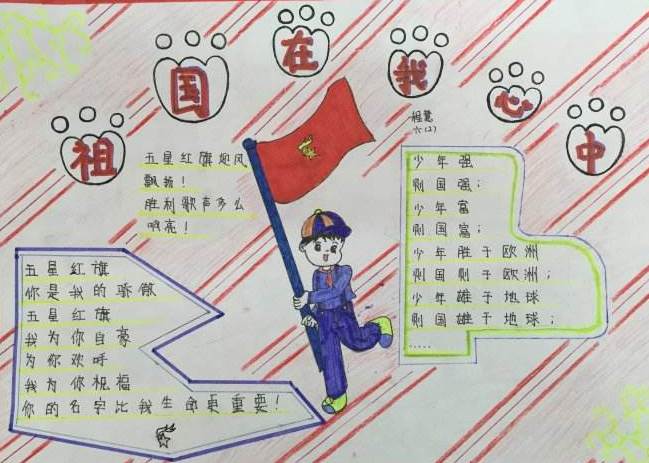 祖国在我心中
程慧
六(2)
五星红旗迎风
飘扬！
胜利歌声多么
响亮！
少年强
则国强；
少年富
则国富；
少年胜于欧洲
则国则于欧洲；
少年雄于地球
则国雄于地球；
……
五星红旗
你是我的骄傲
五星红旗
我为你自豪
为你欢呼
我为你祝福
你的名字比我生命更重要！